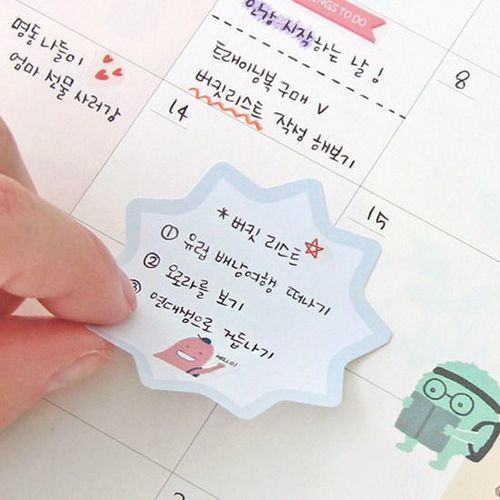 THINGS TO DO
인강 시작하는 날!
트레이닝북 구매 V
버킷리스트 작성 해보기
명동 나들이
엄마 선물 사러감
8
14
15
*버킷 리스트☆
① 유럽 배낭여행 떠나기
② 오로라를 보기
③ 연대생으로 거듭나기
HELLO!